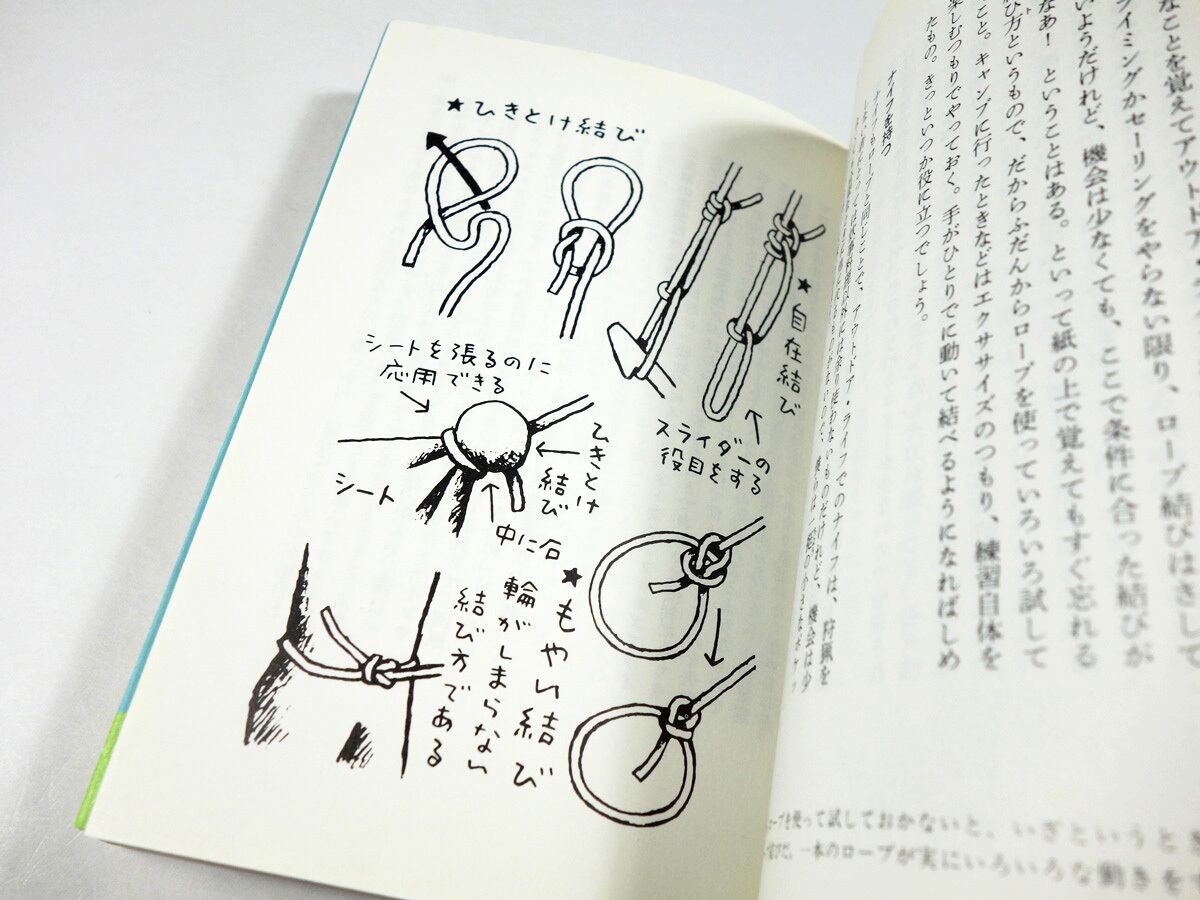 ★ひきとけ結び
★自在結び
スライダーの
役目をする
シートを張るのに
応用できる
ひきとけ
結び
シート
中に石
★もやい結び
輪がしまらない
結び方である
なことを覚えてアウトドア・
ライミングかセーリングをやらない限り、ロープ結びはきして
いようだけれど、機会は少なくても、ここで条件に合った結びが
なあ！ ということはある。といって紙の上で覚えてもすぐ忘れる
び方というもので、だからふだんからロープを使っていろいろ試して
こと。キャンプに行ったときなどはエクササイズのつもり、練習自体を
楽しむつもりでやっておく。手がひとりでに動いて結べるようになればしめ
たもの。きっといつか役に立つでしょう。
ナイフを持つ
ナイフもロープと同じことで、アウトドア・ライフでのナイフは、狩猟を
ロープを使って試しておかないと、いざというとき
一本のロープが実にいろいろな働きを